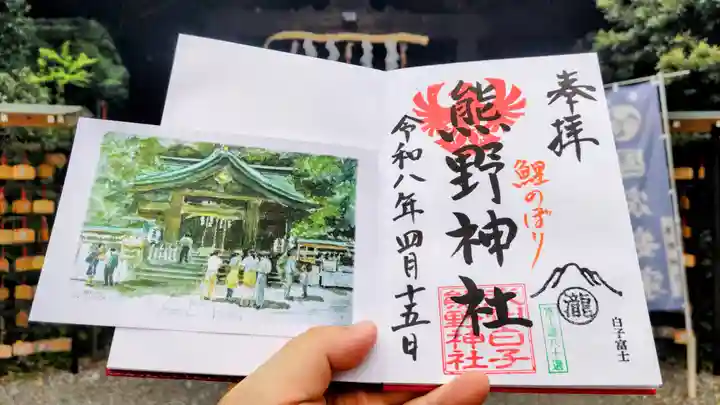 奉拝
鯉のぼり
熊野神社
令和八年四月十五日
白子
熊野神社
瀧
白子富士